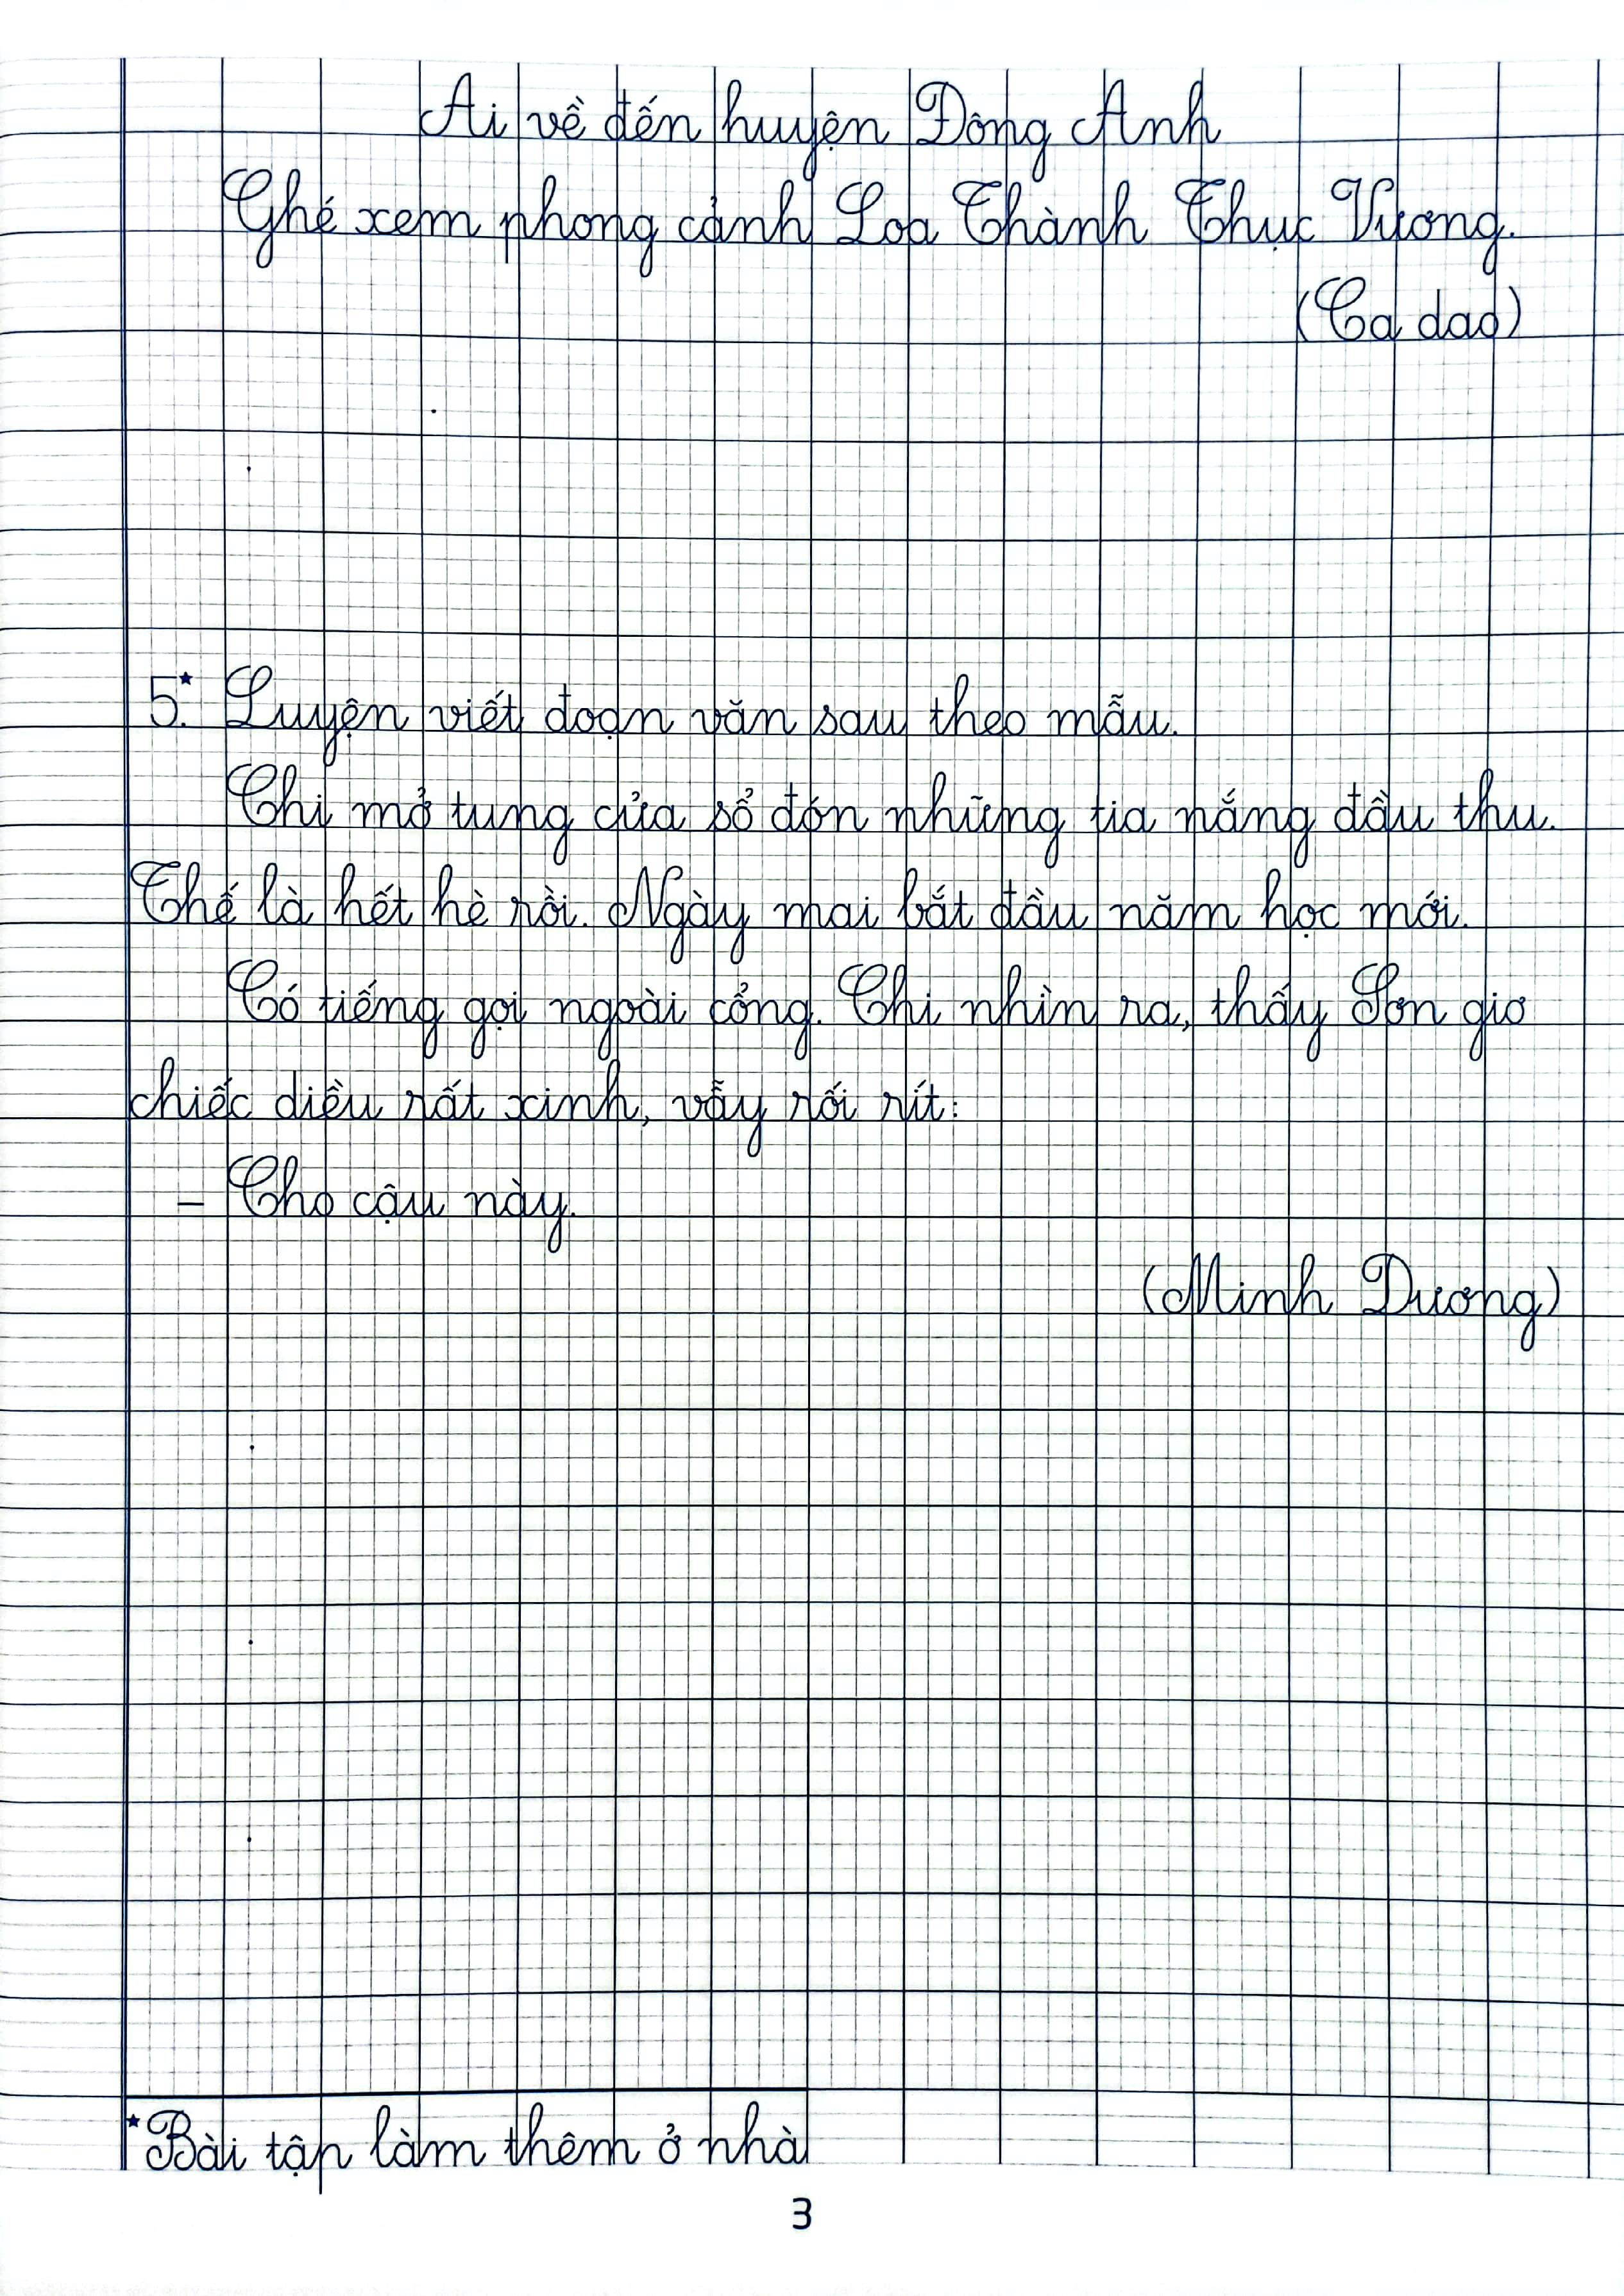 Ai về đến huyện Đông Anh
Ghé xem phong cảnh Loa Thành Thục Vương.
(Ca dao)
5.* Luyện viết đoạn văn sau theo mẫu.
Chi mở tung cửa sổ đón những tia nắng đầu thu.
Thế là hết hè rồi. Ngày mai bắt đầu năm học mới.
Có tiếng gọi ngoài cổng. Chi nhìn ra, thấy Sơn giơ
chiếc diều rất xinh, vẫy rối rít:
- Cho cậu này.
(Minh Dương)
*Bài tập làm thêm ở nhà
3